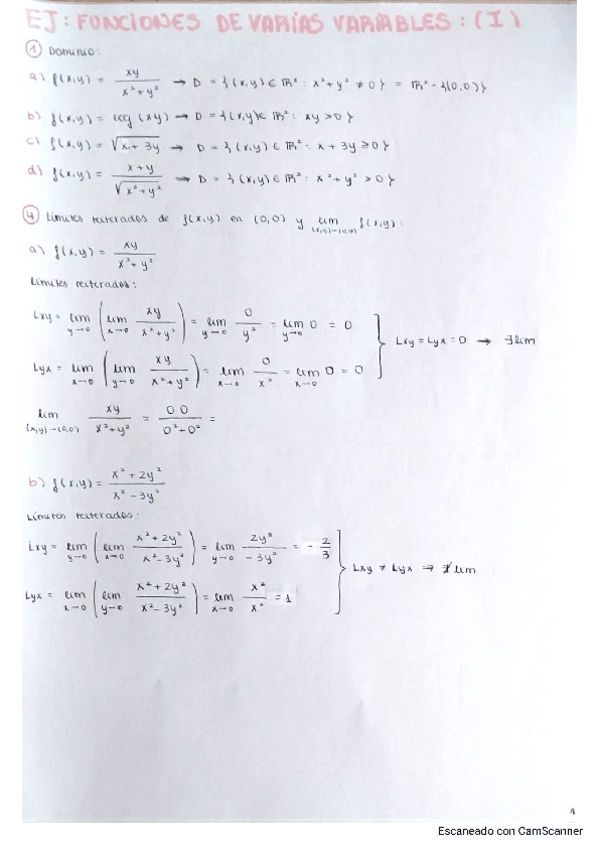 EJ: FUNCIONES DE VARIAS VARIABLES: (I)
① Dominio:
a) f(x,y) = xy / x²+y² → D = {(x,y) ∈ ℝ² : x²+y² ≠ 0} = ℝ² - {(0,0)}
b) f(x,y) = log (xy) → D = {(x,y) ∈ ℝ² : xy > 0}
c) f(x,y) = √(x + 3y) → D = {(x,y) ∈ ℝ² : x + 3y ≥ 0}
d) f(x,y) = x+y / √(x²+y²) → D = {(x,y) ∈ ℝ² : x²+y² > 0}
④ Límites reiterados de f(x,y) en (0,0) y lim (x,y)→(0,0) f(x,y):
a) f(x,y) = xy / x²+y²
Límites reiterados:
Lxy = lim y→0 (lim x→0 xy / x²+y²) = lim y→0 0 / y² = lim y→0 0 = 0
Lyx = lim x→0 (lim y→0 xy / x²+y²) = lim x→0 0 / x² = lim x→0 0 = 0
} Lxy = Lyx = 0 → ∃ lim
lim (x,y)→(0,0) xy / x²+y² = 0·0 / 0²+0² =
b) f(x,y) = x²+2y² / x²-3y²
Límites reiterados:
Lxy = lim y→0 (lim x→0 x²+2y² / x²-3y²) = lim y→0 2y² / -3y² = - 2/3
Lyx = lim x→0 (lim y→0 x²+2y² / x²-3y²) = lim x→0 x² / x² = 1
} Lxy ≠ Lyx → ∄ lim
1
Escaneado con CamScanner